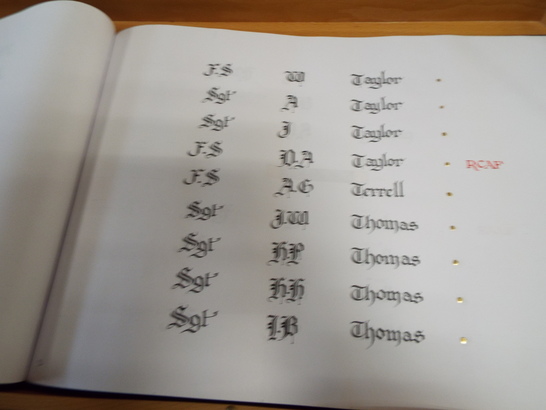 F.S W Taylor
Sgt A Taylor
Sgt J Taylor
F.S D.A Taylor RCAF
F.S A.G Terrell
Sgt J.W Thomas
Sgt H.P Thomas
Sgt H.H Thomas
Sgt J.B Thomas